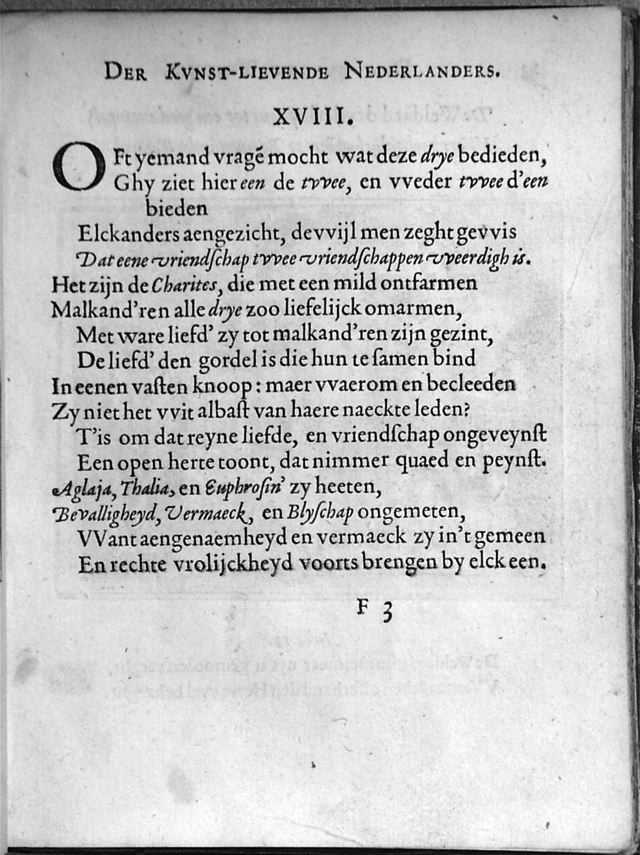 DER KVNST-LIEVENDE NEDERLANDERS.
XVIII.
OFt yemand vragẽ mocht wat deze drye bedieden,
Ghy ziet hier een de tvvee, en vveder tvvee d'een
bieden
Elckanders aengezicht, devvijl men zeght gevvis
Dat eene vriendſchap tvvee vriendſchappen vveerdigh is.
Het zijn de Charites, die met een mild ontfarmen
Malkand'ren alle drye zoo liefelijck omarmen,
Met ware liefd' zy tot malkand'ren zijn gezint,
De liefd' den gordel is die hun te ſamen bind
In eenen vaſten knoop: maer vvaerom en becleeden
Zy niet het vvit albaſt van haere naeckte leden?
T'is om dat reyne liefde, en vriendſchap ongeveynſt
Een open herte toont, dat nimmer quaed en peynſt.
Aglaja, Thalia, en Euphroſin' zy heeten,
Bevalligheyd, Vermaeck, en Blyſchap ongemeten,
VVant aengenaemheyd en vermaeck zy in't gemeen
En rechte vrolijckheyd voorts brengen by elck een.
F 3